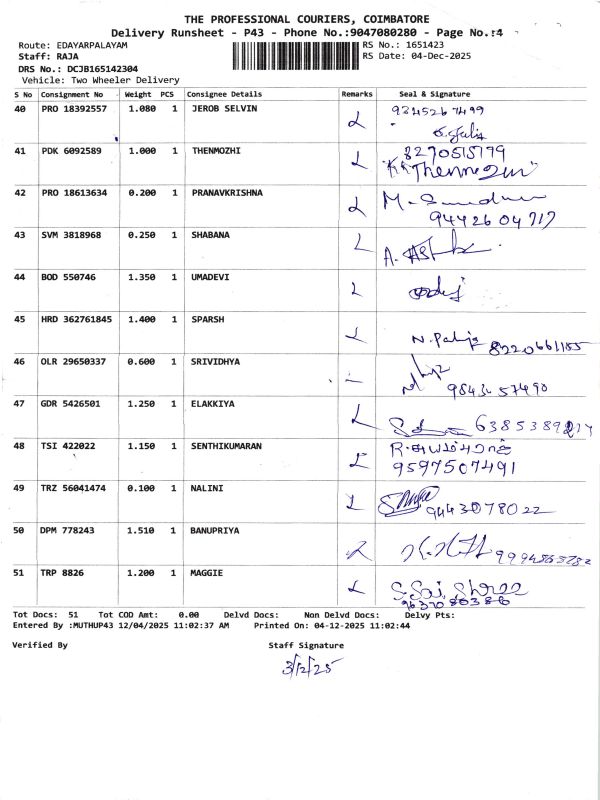 THE PROFESSIONAL COURIERS, COIMBATORE
Delivery Runsheet - P43 - Phone No.:9047080280 - Page No.:4
Route: EDAYARPALAYAM RS No.: 1651423
Staff: RAJA RS Date: 04-Dec-2025
DRS No.: DCJB165142304
Vehicle: Two Wheeler Delivery
S No Consignment No Weight PCS Consignee Details Remarks Seal & Signature
40 PRO 18392557 1.080 1 JEROB SELVIN
41 PDK 6092589 1.000 1 THENMOZHI 8270515779
42 PRO 18613634 0.200 1 PRANAVKRISHNA M.
9442604717
43 SVM 3818968 0.250 1 SHABANA
44 BOD 550746 1.350 1 UMADEVI
45 HRD 362761845 1.400 1 SPARSH
8220661185
46 OLR 29650337 0.600 1 SRIVIDHYA
9843457490
47 GDR 5426501 1.250 1 ELAKKIYA
48 TSI 422022 1.150 1 SENTHIKUMARAN
9597507491
49 TRZ 56041474 0.100 1 NALINI
9443078022
50 DPM 778243 1.510 1 BANUPRIYA
51 TRP 8826 1.200 1 MAGGIE S. Sai Shree
Tot Docs: 51 Tot COD Amt: 0.00 Delvd Docs: Non Delvd Docs: Delvy Pts:
Entered By :MUTHUP43 12/04/2025 11:02:37 AM Printed On: 04-12-2025 11:02:44
Verified By Staff Signature
3/12/25